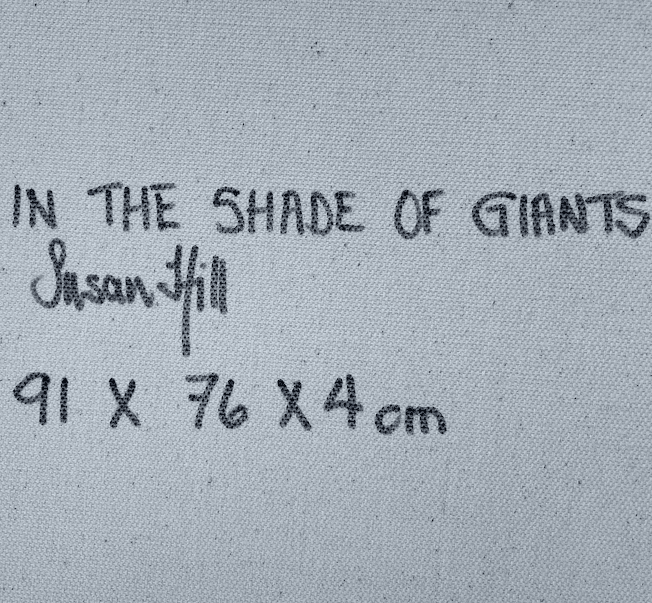 IN THE SHADE OF GIANTS
Susan Hill
91 X 76 X 4 cm